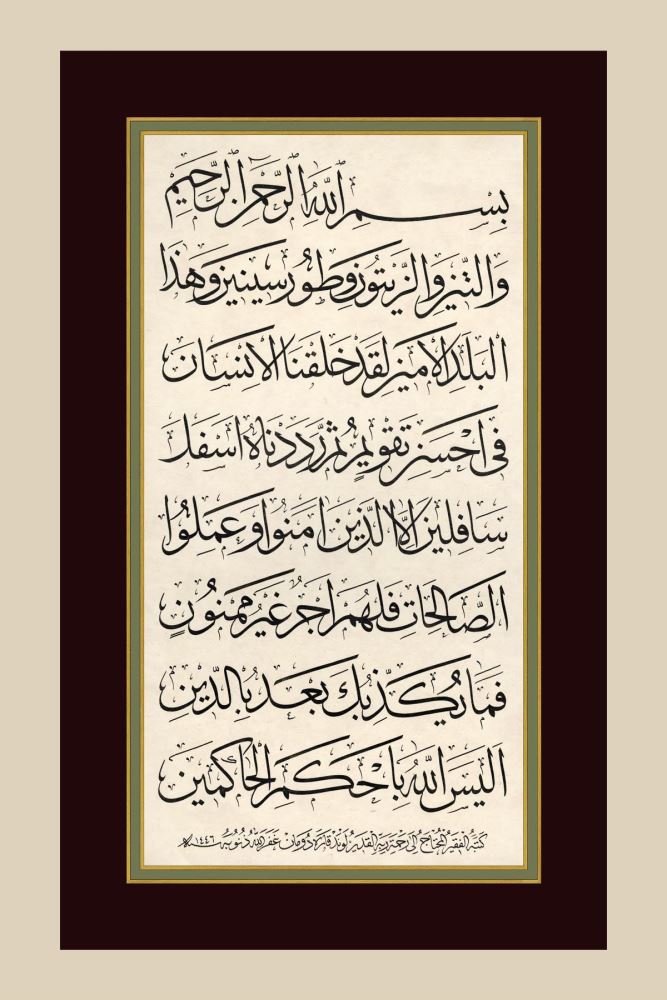 بسم الله الرحمن الرحيم
والتين والزيتون وطور سينين وهذا
البلد الامين لقد خلقنا الانسان
فى احسن تقويم ثم رددناه اسفل
سافلين الا الذين امنوا وعملوا
الصالحات فلهم اجر غير ممنون
فما يكذبك بعد بالدين
اليس الله باحكم الحاكمين
كتبه الفقير المحتاج الى رحمة ربه القدير لوند قره دومان غفر الله ذنوبه ١٤٤٦